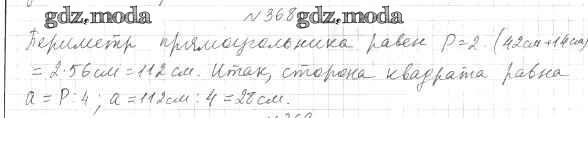 gdz.moda №368 gdz.moda
Периметр прямоугольника равен P=2·(42см+14см)
=2·56см=112см. Итак, сторона квадрата равна
a=P:4; a=112см:4=28см.